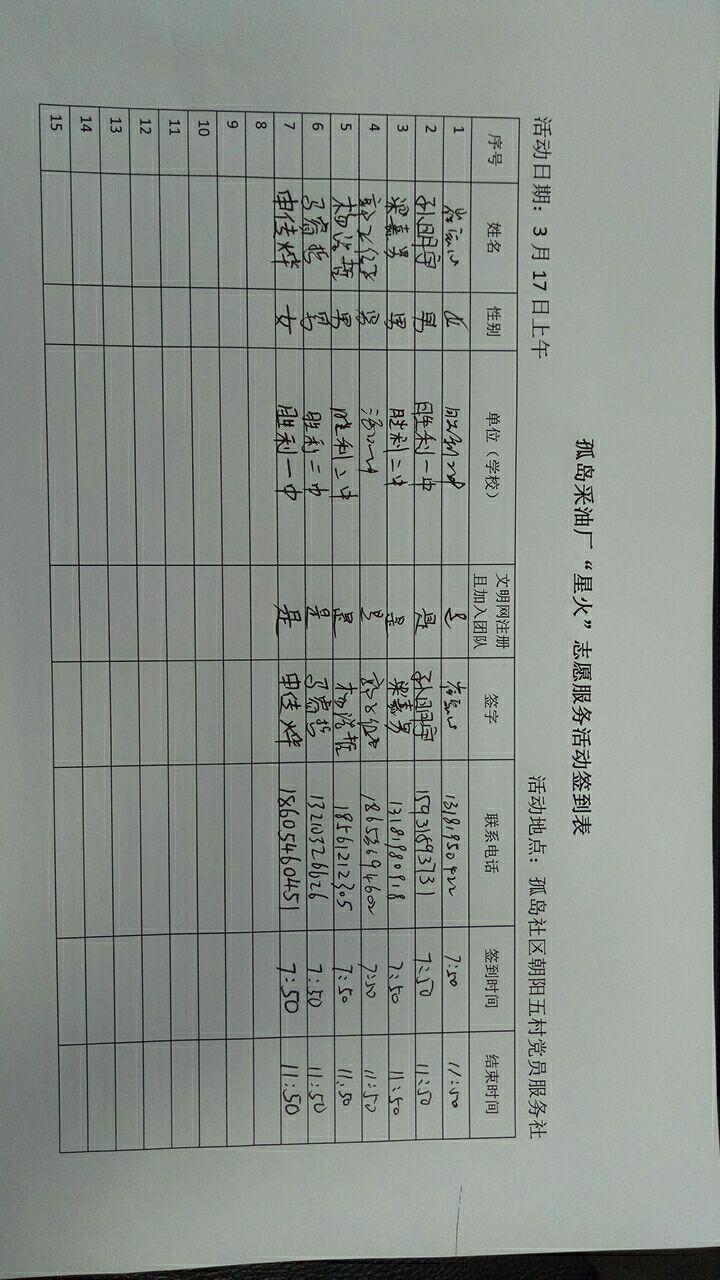 孤岛采油厂“星火”志愿服务活动签到表
活动日期：3月17日上午 活动地点：孤岛社区朝阳五村党员服务社
序号 姓名 性别 单位（学校） 文明网注册且加入团队 签字 联系电话 签到时间 结束时间
1 女 13181950422 7:50 11:50
2 孙明宇 男 胜利一中 是 孙明宇 15931693731 7:50 11:50
3 梁嘉男 男 胜利二中 是 梁嘉男 13181980918 7:50 11:50
4 男 是 18653694602 7:50 11:50
5 杨浩哲 男 胜利二中 是 杨浩哲 18561212305 7:50 11:50
6 男 胜利二中 是 13210326626 7:50 11:50
7 申佳烨 女 胜利一中 是 申佳烨 18605460451 7:50 11:50
8
9
10
11
12
13
14
15